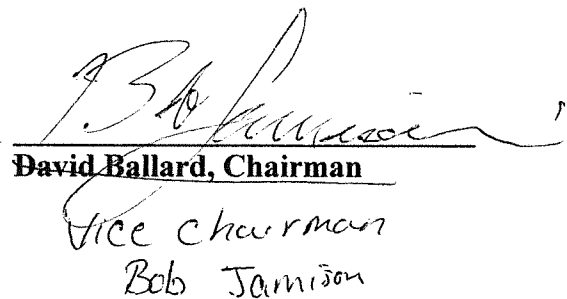 Bob Jamison
David Ballard, Chairman
Vice Chairman
Bob Jamison